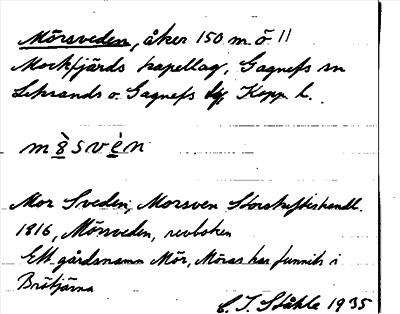 Mörsveden, åker 150 m. ö. 11
Mockfjärds kapellag, Gagnefs sn
Leksands o. Gagnefs tgl Kopp. l.
mö̀svèn
Mor Sveden, Morsven Storskifteshandl.
1816, Mörsveden, revboken
Ett gårdsnamn Mör, Möras har funnits i
Brötjärna
C. I. Ståhle 1935